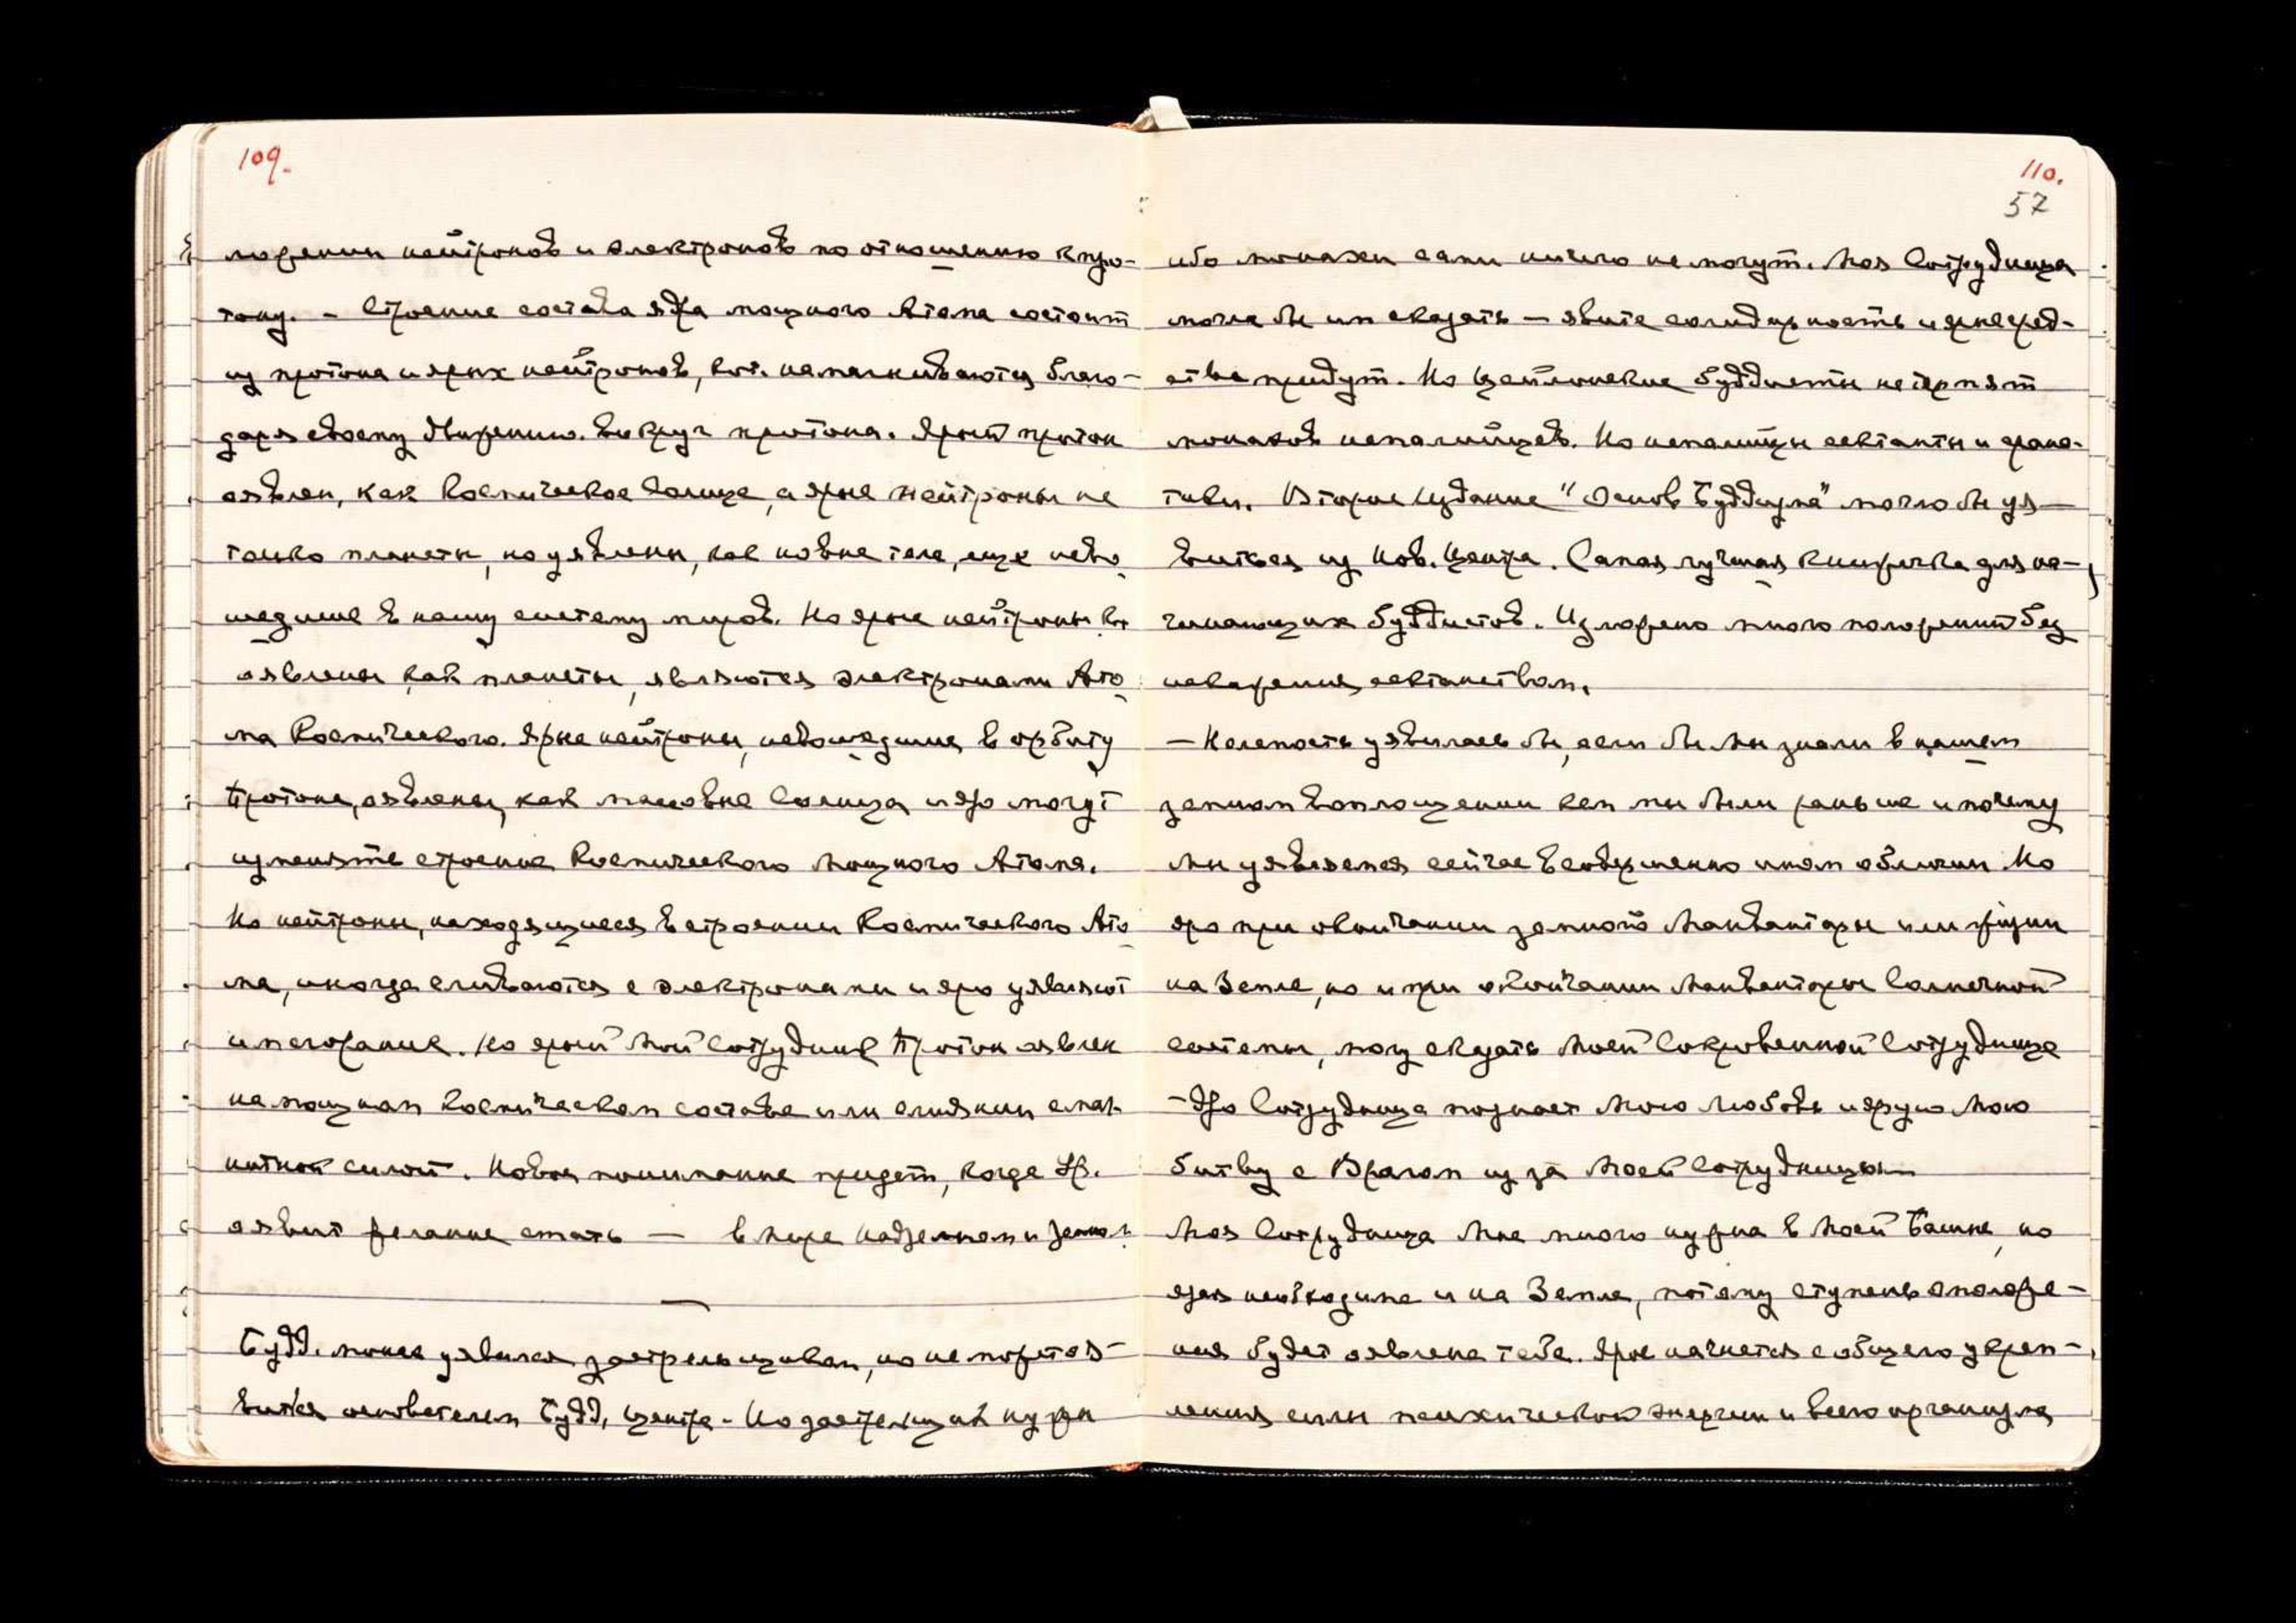 109.
ложении нейтронов и электронов по отношению к про-
тону. – Строение состава ядра мощного Атома состоит
из протона и ярых нейтронов, кот. наталкиваются благо-
даря своему движению вокруг протона. Ярый протон
оявлен, как Космическое Солнце, а ярые нейтроны не
только планеты, но уявлены, как новые тела, еще нево-
шедшие в нашу систему миров. Но ярые нейтроны кот.
оявлены как планеты, являются электронами Ато-
ма Космического. Ярые нейтроны, невошедшие в орбиту
Протона, оявлены, как массовые Солнца и яро могут
изменять строение Космического Мощного Атома.
Но нейтроны, находящиеся в строении Космического Ато-
ма, иногда сливаются с электронами и яро уявляют
умирание. Но ярый Мой Сотрудник Протон оявлен
на мощном Космическом составе или слиянии с маг-
нитной силой. Новое понимание придет, когда Ур.
оявит желание стать — в Мире Надземном и Земном.
Будд. монах уявился застрельщиком, но не может оя-
виться основателем Будд. центра. Но застрельщик нужен
110.
57
ибо монахи сами ничего не могут. Моя Сотрудница
могла бы им сказать — явите солидарность и ярые сред-
ства придут. Но Цейлонские буддисты не терпят
монахов непалийцев. Но непалийцы сектанты и фана-
тики. Второе Издание "Основ Буддизма" могло бы уя-
виться из Нов. Центра. Самая лучшая книжечка для на-
чинающих буддистов. Изложено много положений без
искажения сектантством.
— Нелепость уявилась бы, если бы мы знали в нашем
земном воплощении кем мы были раньше и почему
мы уявляемся сейчас в совершенно ином обличии. Но
яро при окончании земной Манвантары или жизни
на Земле, но и при окончании Манвантары Солнечной
системы, могу сказать Моей Сокровенной Сотруднице
– Яро Сотрудница познает Мою Любовь и ярую Мою
битву с Врагом из за Моей Сотрудницы —
Моя Сотрудница Мне много нужна в Моей Башне, но
ярая необходима и на Земле, потому ступень омоложе-
ния будет оявлена тебе. Ярое начнется с общего укреп-
ления силы психической энергии и всего организма